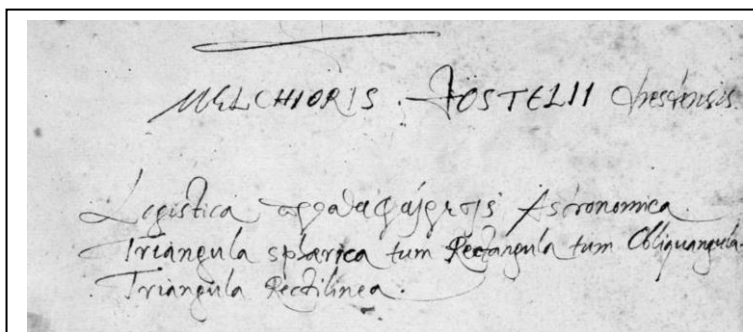 MELCHIORIS . JÖSTELII Dresdensis.
Logistica προσθαφαίρεσις Astronomica.
Triangula sphærica tum Rectangula tum Obliquangula.
Triangula Rectilinea.